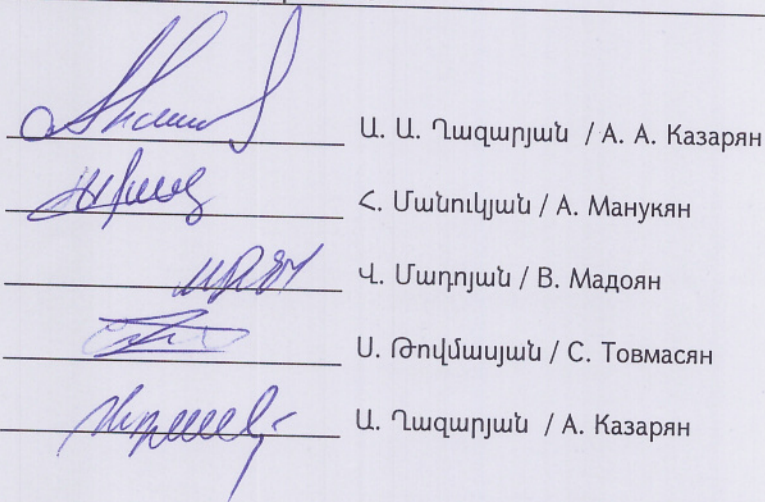 Ա. Ա. Ղազարյան / А. А. Казарян
Հ. Մանուկյան / А. Манукян
Վ. Մադոյան / В. Мадоян
Ս. Թովմասյան / С. Товмасян
Ա. Ղազարյան / А. Казарян